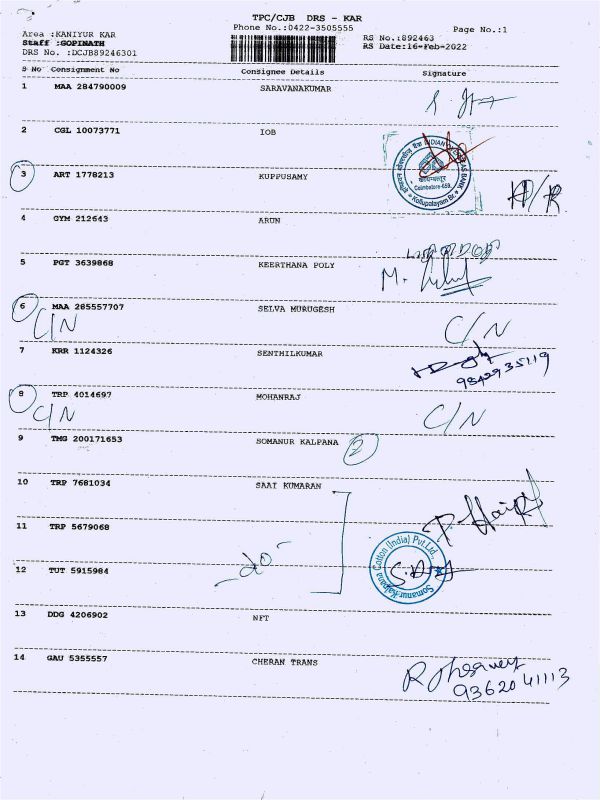 TPC/CJB DRS - KAR
Phone No.:0422-3505555
Page No.:1
Area :KANIYUR KAR
RS No.:892463
Staff :GOPINATH
RS Date:16-Feb-2022
DRS No. :DCJB89246301
S No Consignment No Consignee Details Signature
1 MAA 284790009 SARAVANAKUMAR
2 CGL 10073771 IOB
INDIAN OVERSEAS BANK
Coimbatore-659
Kollupalayam Br.
3 ART 1778213 KUPPUSAMY
4 GYM 212643 ARUN
5 PGT 3639868 KEERTHANA POLY
6 MAA 285557707 SELVA MURUGESH
C/N C/N
7 KRR 1124326 SENTHILKUMAR
9842935119
8 TRP 4014697 MOHANRAJ
C/N C/N
9 TMG 200171653 SOMANUR KALPANA 2
10 TRP 7681034 SAAI KUMARAN
11 TRP 5679068
-do-
Somanur Kalpana Cotton (India) Pvt Ltd.
12 TUT 5915984
13 DDG 4206902 NFT
14 GAU 5355557 CHERAN TRANS
9362041113